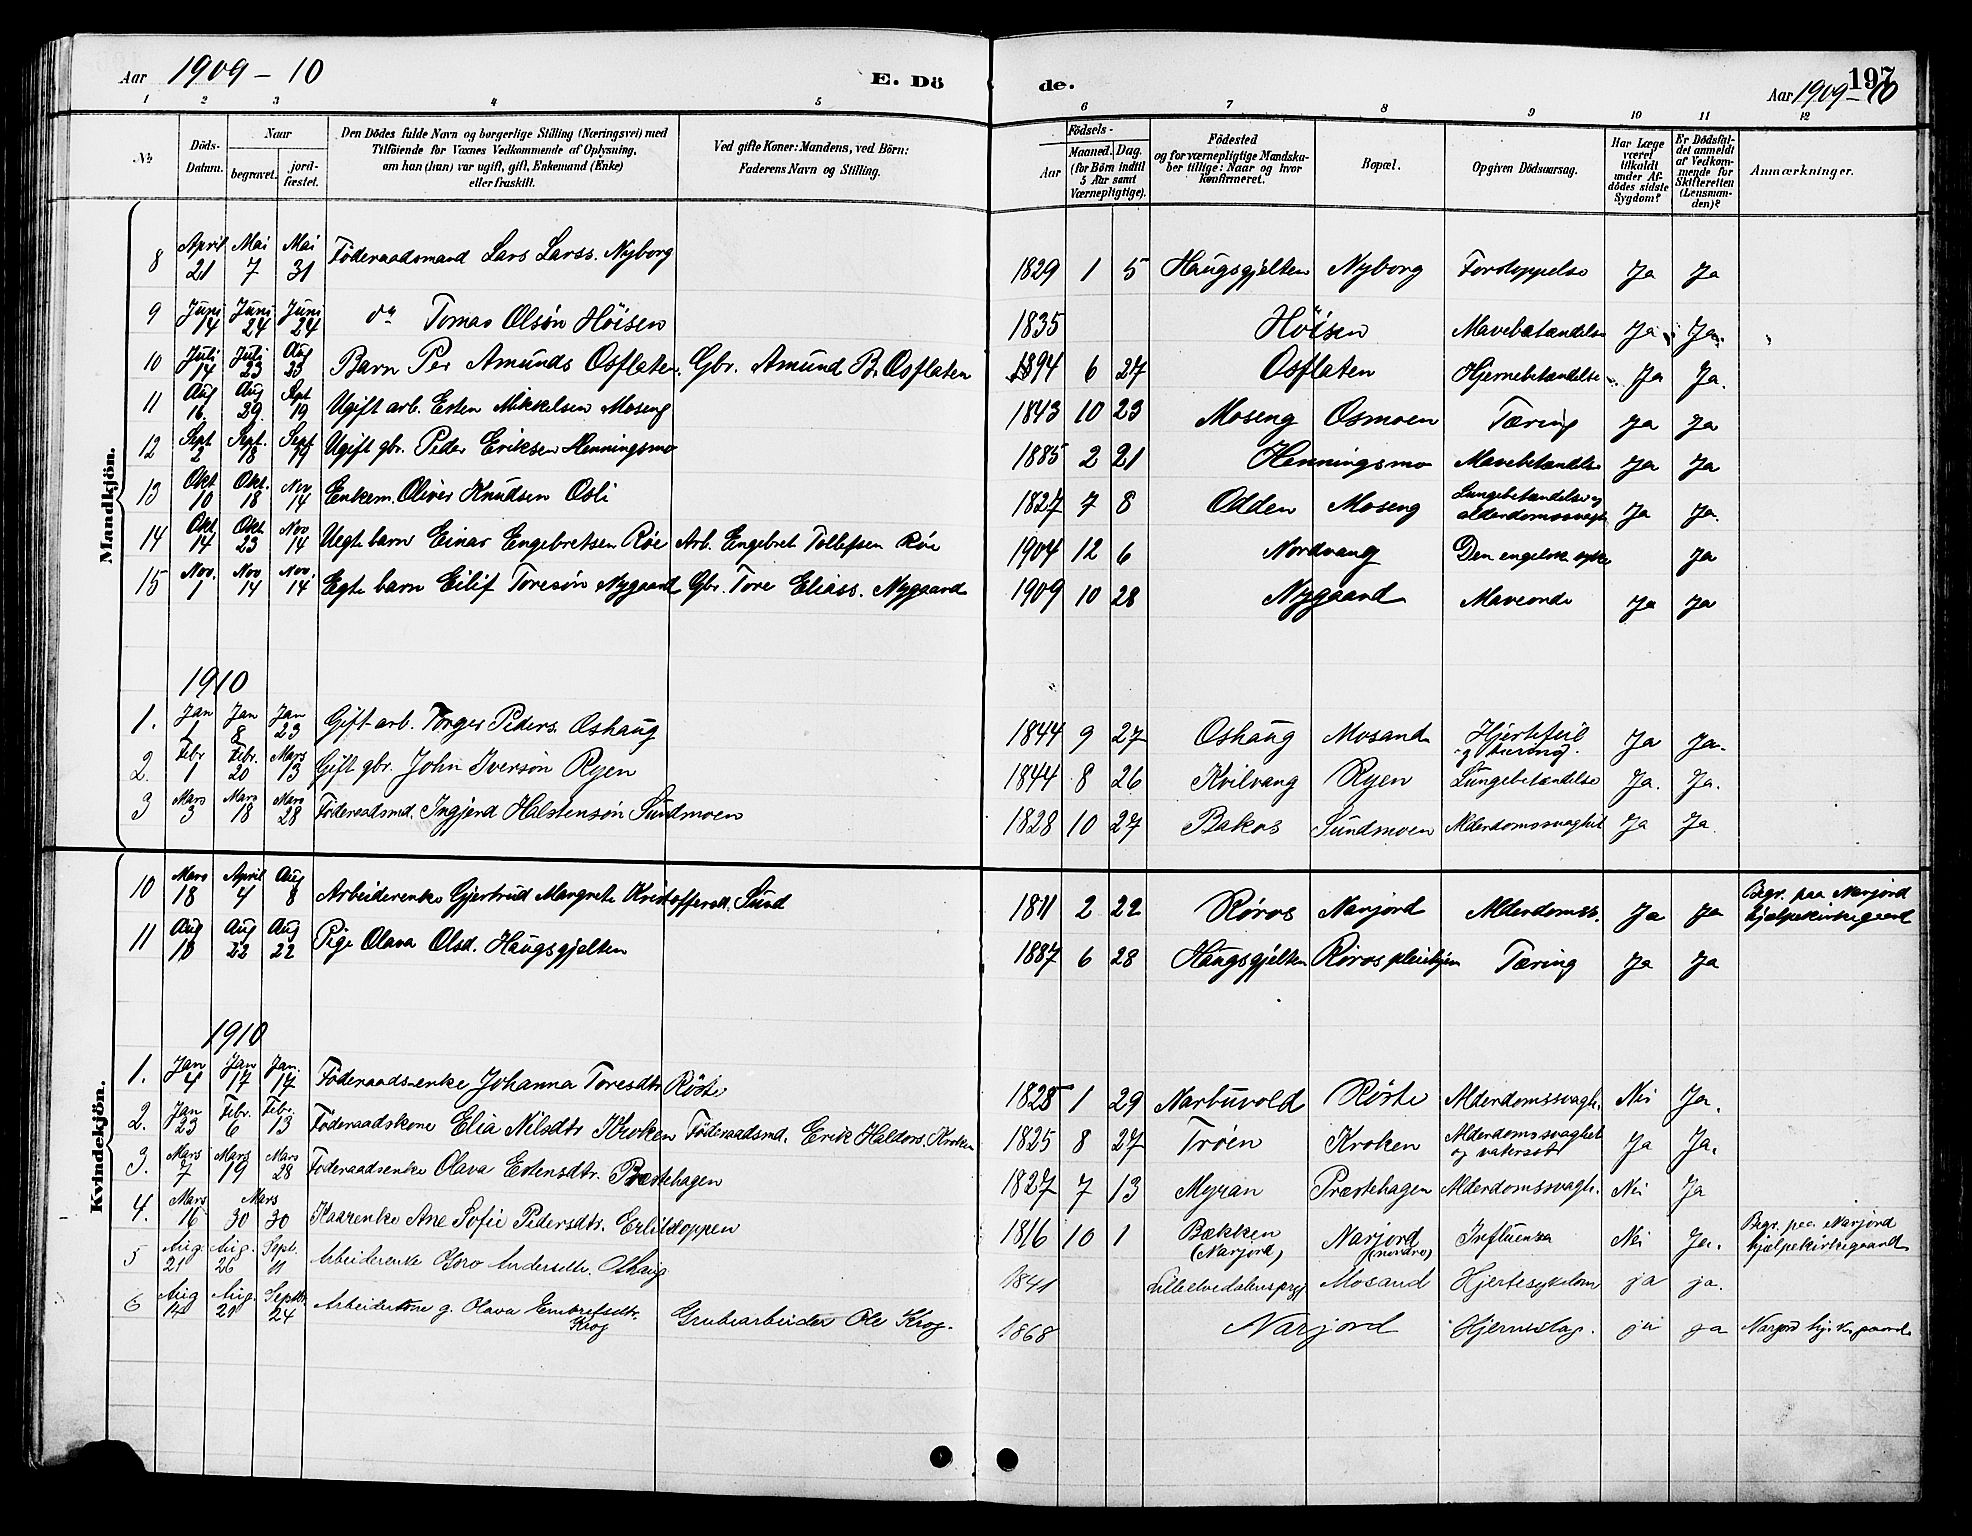 Aar 1909 – 10
E. Dö
de.
197
Aar 1909–10
1 2 3 4 5 6 7 8 9 10 11 12
No
Döds-Datum.
Naar
begravet.
jord-fæstet.
Den Dödes fulde Navn og borgerlige Stilling (Næringsvei) med
Tilföiende for Voxnes Vedkommende af Oplysning,
om han (hun) var ugift, gift, Enkemand (Enke)
eller fraskilt.
Ved gifte Koner: Mandens, ved Börn:
Faderens Navn og Stilling.
Födsels-
Aar
Maaned. Dag.
(for Börn indtil
5 Aar samt
Værnepligtige).
Födested
og for værnepligtige Mandska-
ber tillige: Naar og hvor
konfirmeret.
Bopæl.
Opgiven Dödsaarsag.
Har Læge
været
tilkaldt
under Af-
dödes sidste
Sygdom?
Er Dödsfal-
det anmeldt
af Vedkom-
mende for
Skifteretten
(Lensman-
den)?
Anmærkninger.
Mandkjön.
8 April 21 Mai 7 Mai 31 Föderaadsmand Lars Larss. Nyborg 1829 1 5 Haugsgjelten Nyborg Forstoppelse Ja Ja
9 Juni 14 Juni 24 Juni 24 do Tomas Olsön Höisen 1835 Höisen Mavebetændelse Ja Ja
10 Juli 14 Juli 23 Aug 23 Barn Per Amunds Osflaten Gbr. Amund B. Osflaten 1894 6 27 Osflaten Hjernebetændelse Ja Ja.
11 Aug 16 Aug 29 Sept 19 Ugift arb. Esten Mikkelsen Moseng 1843 10 23 Moseng Osmoen Tæring Ja Ja
12 Sept 2 Sept. 18 Sept 19 Ugift gbr. Peder Eriksen Henningsmo 1885 2 21 Henningsmo Mavebetændelse Ja Ja
13 Okt 10 Okt. 18 Nov 14 Enkem. Oliver Knudsen Osli 1827 7 8 Odden Moseng Lungebetændelse og alderdomssvagh. Ja Ja.
14 Okt 14 Okt 23 Nov 14 Uegte barn Einar Engebretsen Röe Arb. Engebret Tollefsen Röe 1904 12 6 Nordvang Den engelske syke Ja
15 Nov. 1 Nov 14 Nov. 14 Egte barn Eilif Toresön Nygaard Gbr. Tore Eliass. Nygaard 1909 10 28 Nygaard Maveonde Ja Ja
1910
1. Jan 1 Jan 8 Jan 23 Gift arb. Torger Peders. Oshaug 1844 9 27 Oshaug Mosand Hjertefeil og tæring. Ja Ja.
2. Febr 1 Febr. 20 Mars 13 Gift gbr. John Iversön Ryen 1844 8 26 Kvilvang Ryen Lungebetændelse Ja. Ja.
3 Mars 3 Mars 18 Mars 28 Föderaadsmd. Ingjerd Halstensön Sundmoen 1828 10 27 Bakos Sundmoen Alderdomssvaghet Ja Ja.
Kvindekjön.
10 Mars 18 April 4 Aug 8 Arbeiderenke Gjertrud Margrete Kristoffersd. Sund 1811 2 22 Röros Narjord Alderdomss. Ja Ja Begr. paa Narjord hjælpekirkegaard
11 Aug 10 Aug 22 Aug 22 Pige Olava Olsd. Haugsgjelten 1887 6 28 Haugsgjelten Röros pleiehjem Tæring Ja Ja
1910
1. Jan 4 Jan 17 Jan. 17 Föderaads-enke Johanna Toresdtr Röste 1825 1 29 Narbuvold Röste Alderdomssvagh. Nei Ja.
2. Jan 23 Febr. 6 Febr. 13 Föderaadskone Elia Nilsdtr Kroken Föderaadsmd. Erik Haldors. Kroken 1825 8 27 Tröen Kroken Alderdomssvaghet og vatersot Ja Ja.
3. Mars 7 Mars 19 Mars 28 Föderaadsenke Olava Estensdtr. Præstehagen 1827 7 13 Myran Præstehagen Alderdomssvagh. Nei Ja
4. Mars 16 Mars 30 30 Kaarenke Ane Sofie Pedersdtr. Erlitloppen 1816 10 1 Bækken (Narjord) Narjord (nordre) Influensa Nei Ja. Begr. paa Narjord hjælpekirkegaard
5 Aug. 21 Aug. 26 Sept. 11 Arbeiderenke Goro Andersdtr. Oshaug 1841 Lilleelvedalens prgj Mosand Hjertesykdom ja ja.
6 Aug 14 Aug. 20 Septbr 24 Arbeiderkone g. Olava Embretsdtr. Krog Grubearbeider Ole Krog. 1868 Narjord Hjerneslag. ja ja Narjord hj. k. gaard